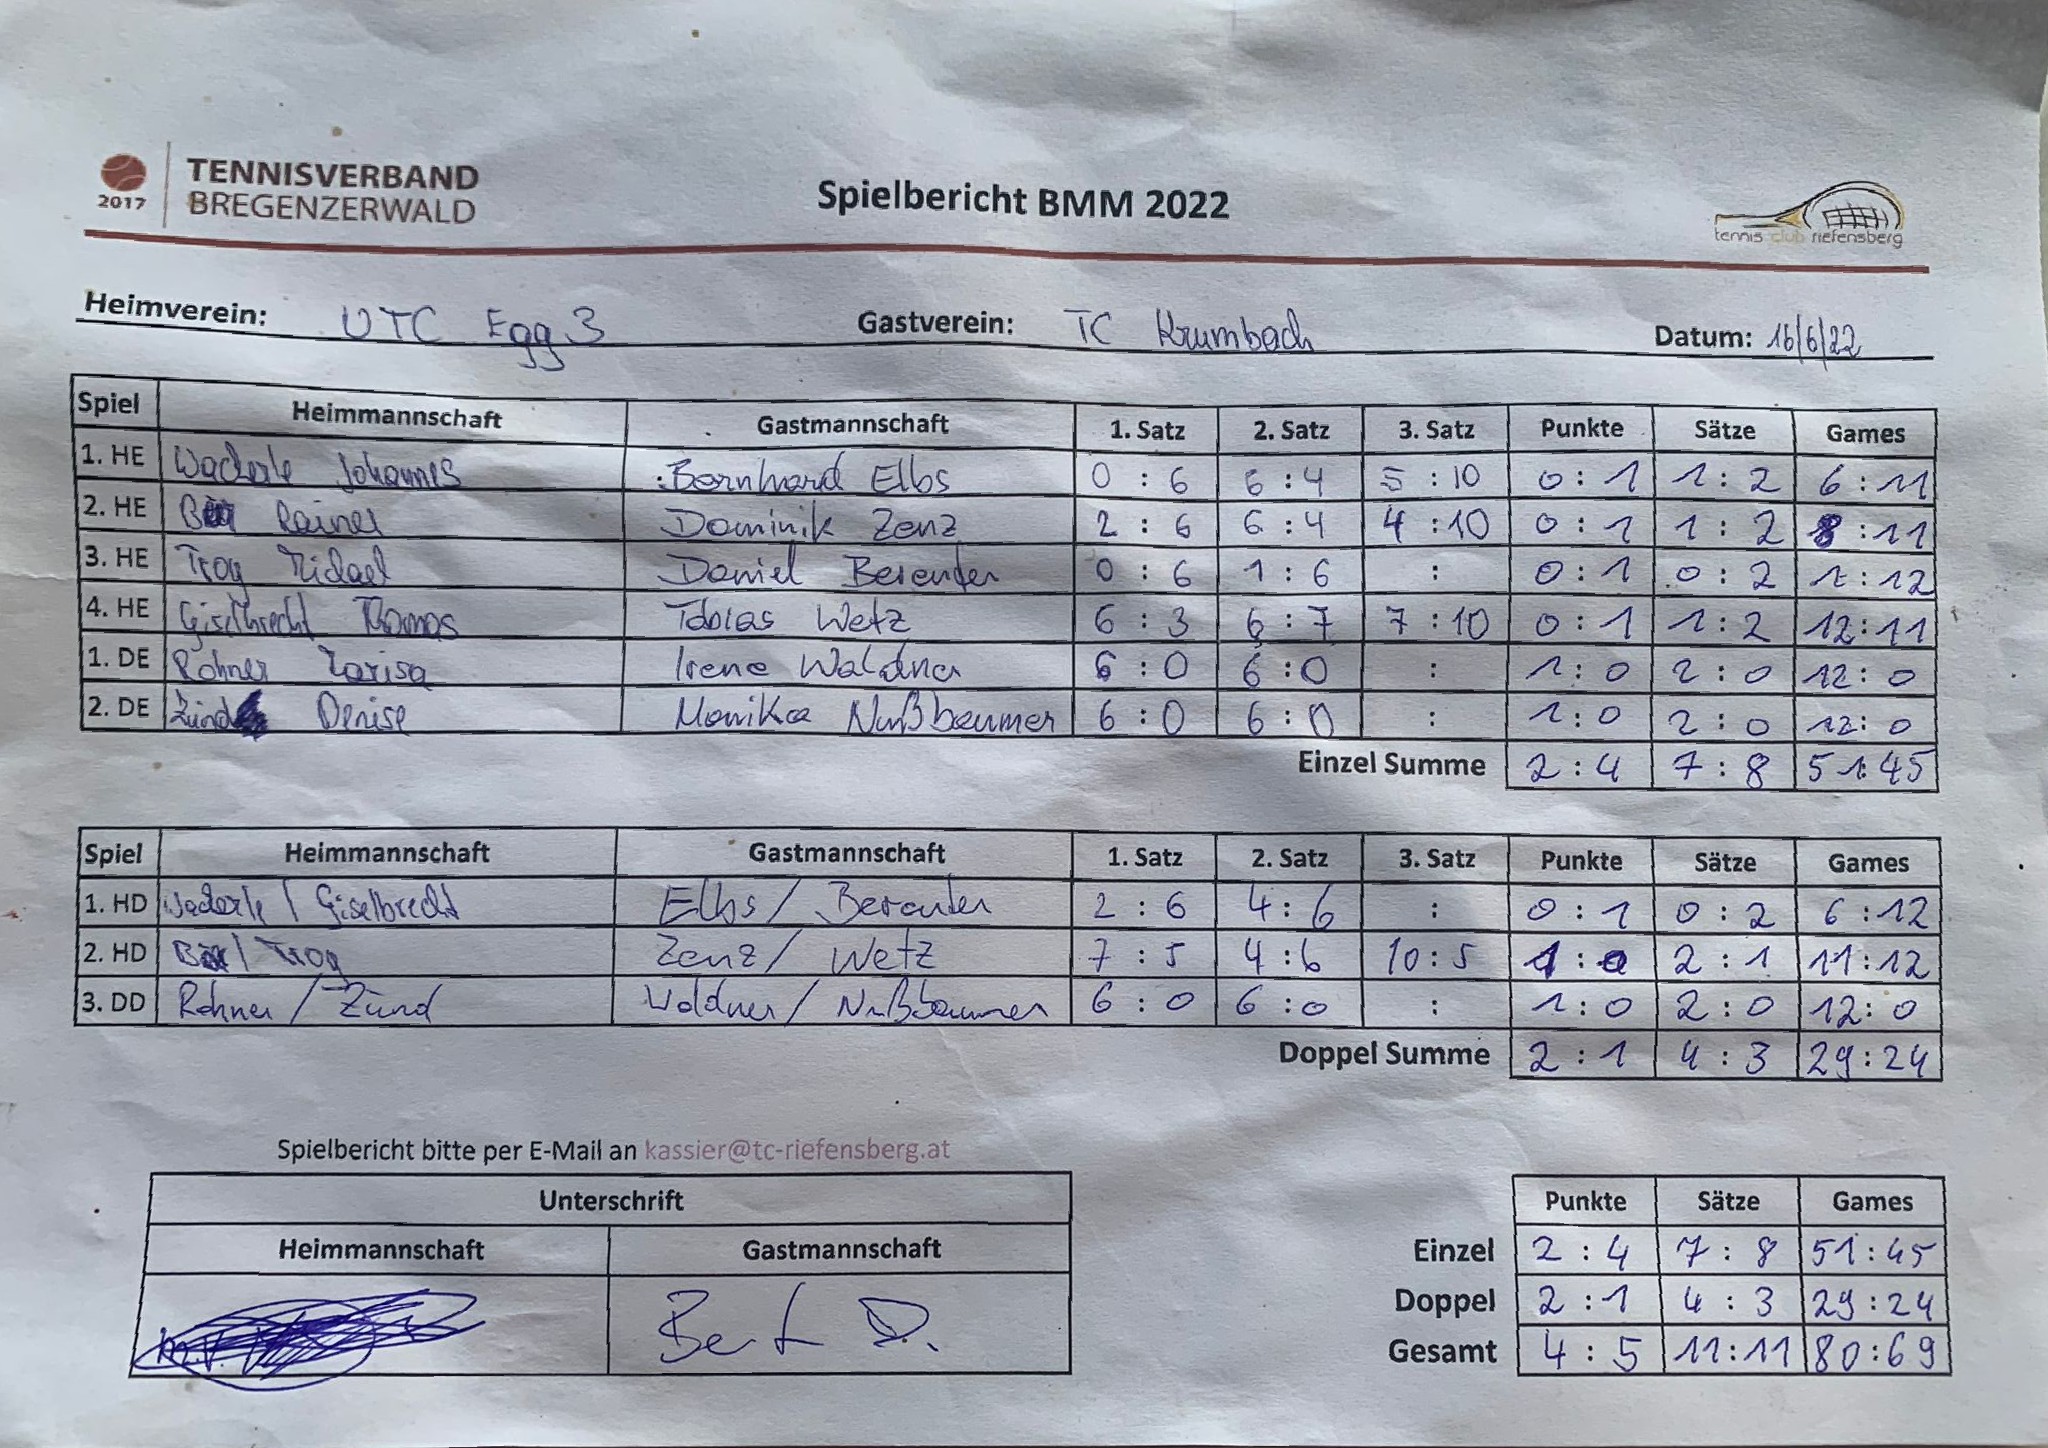 TENNISVERBAND
2017 BREGENZERWALD
Spielbericht BMM 2022
tennis club riefensberg
Heimverein: UTC Egg 3 Gastverein: TC Krumbach Datum: 16/6/22
Spiel Heimmannschaft Gastmannschaft 1. Satz 2. Satz 3. Satz Punkte Sätze Games
1. HE Wackerle Johannes Bernhard Elbs 0 : 6 6 : 4 5 : 10 0 : 1 1 : 2 6 : 11
2. HE Rainer Dominik Zenz 2 : 6 6 : 4 4 : 10 0 : 1 1 : 2 8 : 11
3. HE Troy Michael Daniel Bereuter 0 : 6 1 : 6 : 0 : 1 0 : 2 1 : 12
4. HE Giselbrecht Thomas Tobias Wetz 6 : 3 6 : 7 7 : 10 0 : 1 1 : 2 12 : 11
1. DE Rohner Larisa Irene Waldner 6 : 0 6 : 0 : 1 : 0 2 : 0 12 : 0
2. DE Zünd Denise Monika Nußbaumer 6 : 0 6 : 0 : 1 : 0 2 : 0 12 : 0
Einzel Summe 2 : 4 7 : 8 51 : 45
Spiel Heimmannschaft Gastmannschaft 1. Satz 2. Satz 3. Satz Punkte Sätze Games
1. HD Wackerle / Giselbrecht Elbs / Bereuter 2 : 6 4 : 6 : 0 : 1 0 : 2 6 : 12
2. HD / Troy Zenz / Wetz 7 : 5 4 : 6 10 : 5 1 : 0 2 : 1 11 : 12
3. DD Rohner / Zünd Waldner / Nußbaumer 6 : 0 6 : 0 : 1 : 0 2 : 0 12 : 0
Doppel Summe 2 : 1 4 : 3 29 : 24
Spielbericht bitte per E-Mail an kassier@tc-riefensberg.at
Unterschrift
Heimmannschaft Gastmannschaft
Punkte Sätze Games
Einzel 2 : 4 7 : 8 51 : 45
Doppel 2 : 1 4 : 3 29 : 24
Gesamt 4 : 5 11 : 11 80 : 69